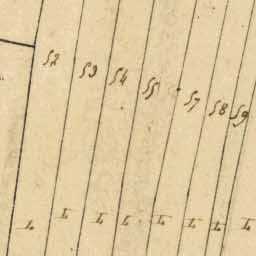 52 53 54 55 57 58 59
L L L L L L L L